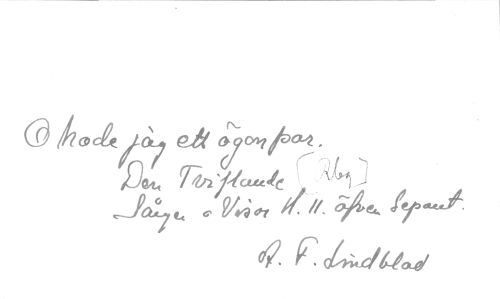 O hade jag ett ögonpar.
Den Tviflande
Sånger o Visor H. 11. äfven Separat.
A. F. Lindblad